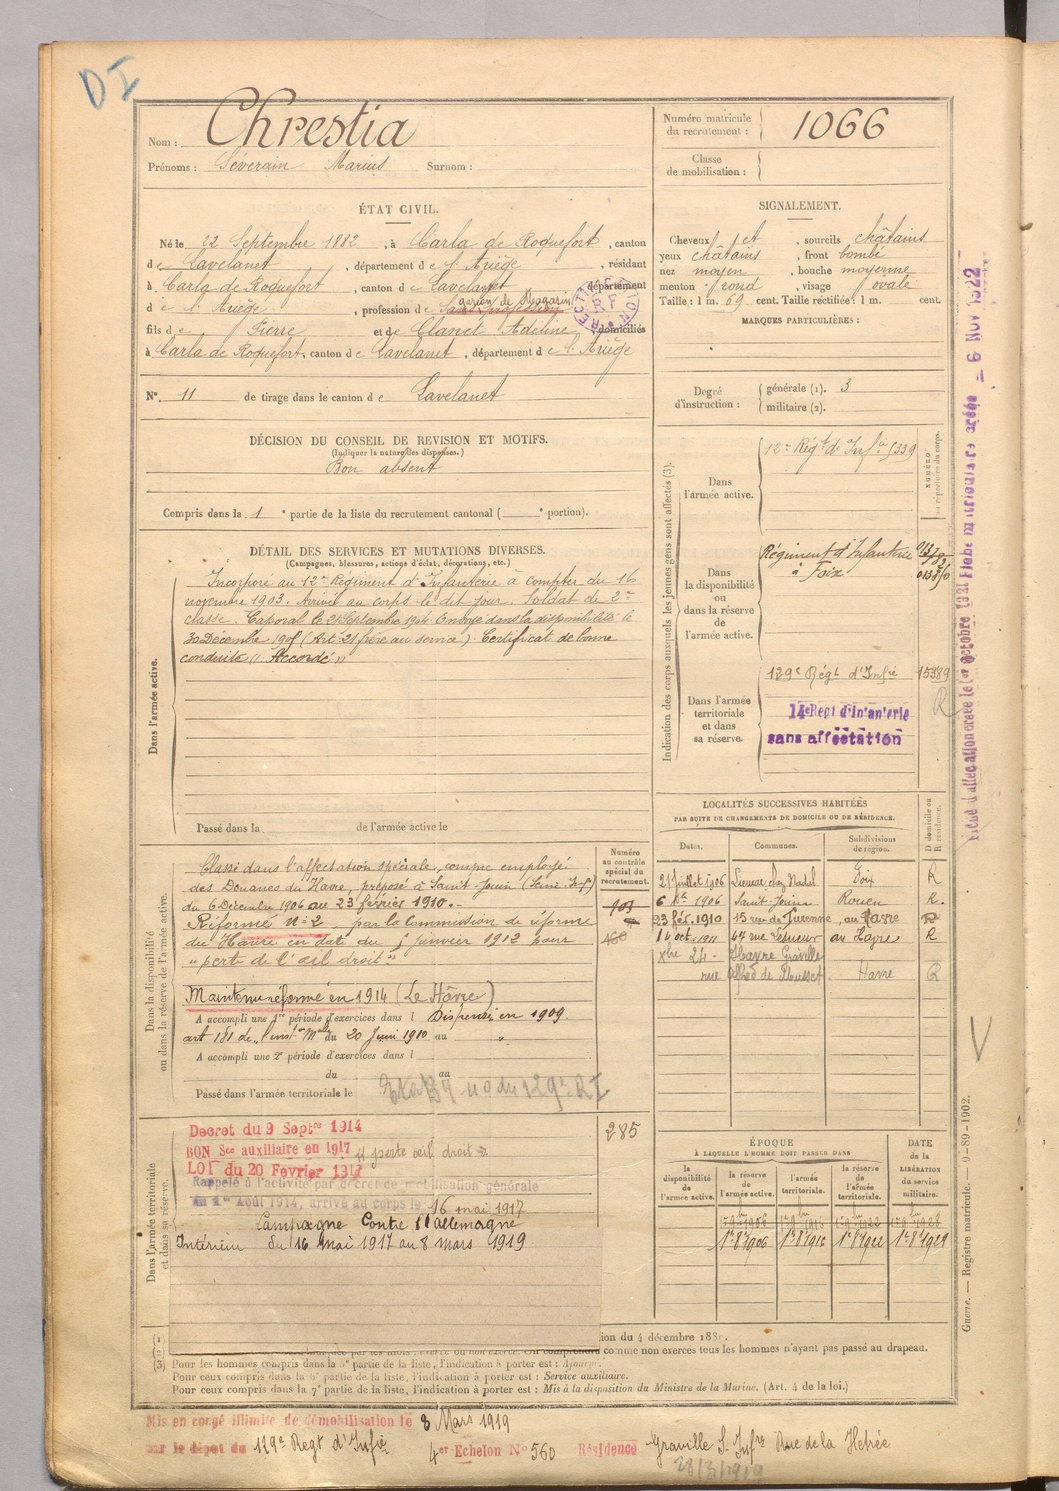 DI
Nom : Chrestia
Prénoms : Séverain Marius Surnom :
Numéro matricule du recrutement : 1066
Classe de mobilisation :
ÉTAT CIVIL.
Né le 22 Septembre 1882, à Carla de Roquefort, canton
de Lavelanet, département de l'Ariège, résidant
à Carla de Roquefort, canton de Lavelanet, département
de l'Ariège, profession de garçon de Magasin
fils de Pierre et de Clanet Adeline, domiciliés
à Carla de Roquefort, canton de Lavelanet, département de l'Ariège
N° 11 de tirage dans le canton de Lavelanet
SIGNALEMENT.
Cheveux et, sourcils châtains
yeux châtains, front bombé
nez moyen, bouche moyenne
menton rond, visage ovale
Taille : 1 m. 69 cent. Taille rectifiée : 1 m. cent.
MARQUES PARTICULIÈRES :
Degré d'instruction : générale (1). 3
militaire (2).
DÉCISION DU CONSEIL DE REVISION ET MOTIFS.
(Indiquer la nature des dispenses.)
Bon absent
Compris dans la 1e partie de la liste du recrutement cantonal ( e portion).
DÉTAIL DES SERVICES ET MUTATIONS DIVERSES.
(Campagnes, blessures, actions d'éclat, décorations, etc.)
Dans l'armée active.
Incorporé au 12e Régiment d'Infanterie à compter du 16
novembre 1903. Arrivé au corps le dit jour. Soldat de 2e
classe. Caporal le 21 Septembre 1904 Envoyé dans la disponibilité le
30 Décembre 190 (Art. 21 frère au service) Certificat de bonne
conduite "Accordé"
Passé dans la de l'armée active le
Indication des corps auxquels les jeunes gens sont affectés (3).
NUMÉRO au répertoire du corps.
Dans l'armée active.
12e Régt d'Infie 5339
Dans la disponibilité ou dans la réserve de l'armée active.
Régiment d'Infanterie
à Foix
Dans l'armée territoriale et dans sa réserve.
129e Régt d'Infie 15389
R
14e Regt d'Infanterie
sans affectation
LOCALITÉS SUCCESSIVES HABITÉES
PAR SUITE DE CHANGEMENTS DE DOMICILE OU DE RÉSIDENCE.
Dates. Communes. Subdivisions de région. D domicile ou R résidence.
21 Juillet 1906 Foix R
6 1906 Saint Jouin Rouen R.
23 fév. 1910 15 rue de Turenne, au Havre R
1 oct. 1911 47 rue Lesueur au Havre R
Xbre 24 - Havre Graville
rue Alfred de Musset Havre R
Dans la disponibilité ou dans la réserve de l'armée active.
Numéro au contrôle spécial du recrutement.
Classé dans l'affectation spéciale, comme employé
des Douanes du Havre, préposé à Saint Jouin (Seine Infre)
du 6 Décembre 1906 au 23 février 1910.-
Réformé N° 2 par la Commission de réforme
du Havre en date du janvier 1912 pour
"perte de l'œil droit."
Maintenu réformé en 1914 (Le Hâvre)
A accompli une 1re période d'exercices dans l Dispensé en 1909.
art 181 de l'instr Mlle du 20 Juin 1910 au "
A accompli une 2e période d'exercices dans l
du au
Passé dans l'armée territoriale le
129e RI
Dans l'armée territoriale et dans sa réserve.
285
Decret du 9 Septre 1914
BON Sce auxiliaire en 1917 perte œil droit
LOI du 20 Fevrier 1917
Rappelé à l'activité par décret de mobilisation générale
du 1er Août 1914, arrivé au corps le 16 mai 1917
Campagne Contre l'Allemagne
Intérieur du 16 Mai 1917 au 8 mars 1919
ÉPOQUE
À LAQUELLE L'HOMME DOIT PASSER DANS
la disponibilité de l'armée active. la réserve de l'armée active. l'armée territoriale. la réserve de l'armée territoriale. DATE de la LIBÉRATION du service militaire.
1r 8bre 1906 1r 8bre 1916 1r 8bre 1922
ion du 4 décembre 188
comme non exercés tous les hommes n'ayant pas passé au drapeau.
(3) Pour les hommes compris dans la 5e partie de la liste, l'indication à porter est : Ajourné.
Pour ceux compris dans la 6e partie de la liste, l'indication à porter est : Service auxiliaire.
Pour ceux compris dans la 7e partie de la liste, l'indication à porter est : Mis à la disposition du Ministre de la Marine. (Art. 4 de la loi.)
Mis en congé illimité de démobilisation le 8 Mars 1919
sur le dépôt du 129e Regt d'Infie 4er Echelon N° 560 Résidence Graville S. Infre Rue de la
28/3/1919
6 Nov 1922
Guerre. — Registre matricule. — 9-89-1902.